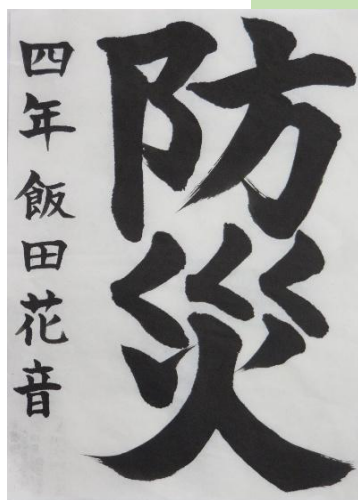 防災
四年 飯田花音